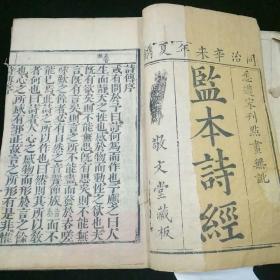 同治辛未年夏鐫
悉遵家刊點畫無訛
監本詩經
敬文堂藏板
詩傳序
或有問於予曰詩何為而作也予應之曰人
生而靜天之性也感於物而動性之欲也夫
既有欲矣則不能無思既有思矣則不能無
言既有言矣則言之所不能盡而發於咨嗟
咏歎之餘者必有自然之音響節族而不
能已焉此詩之所以作也曰然則其所以教
者何也曰詩者人心之感物而形於言之餘
也心之所感有邪正故言之所形有是非惟